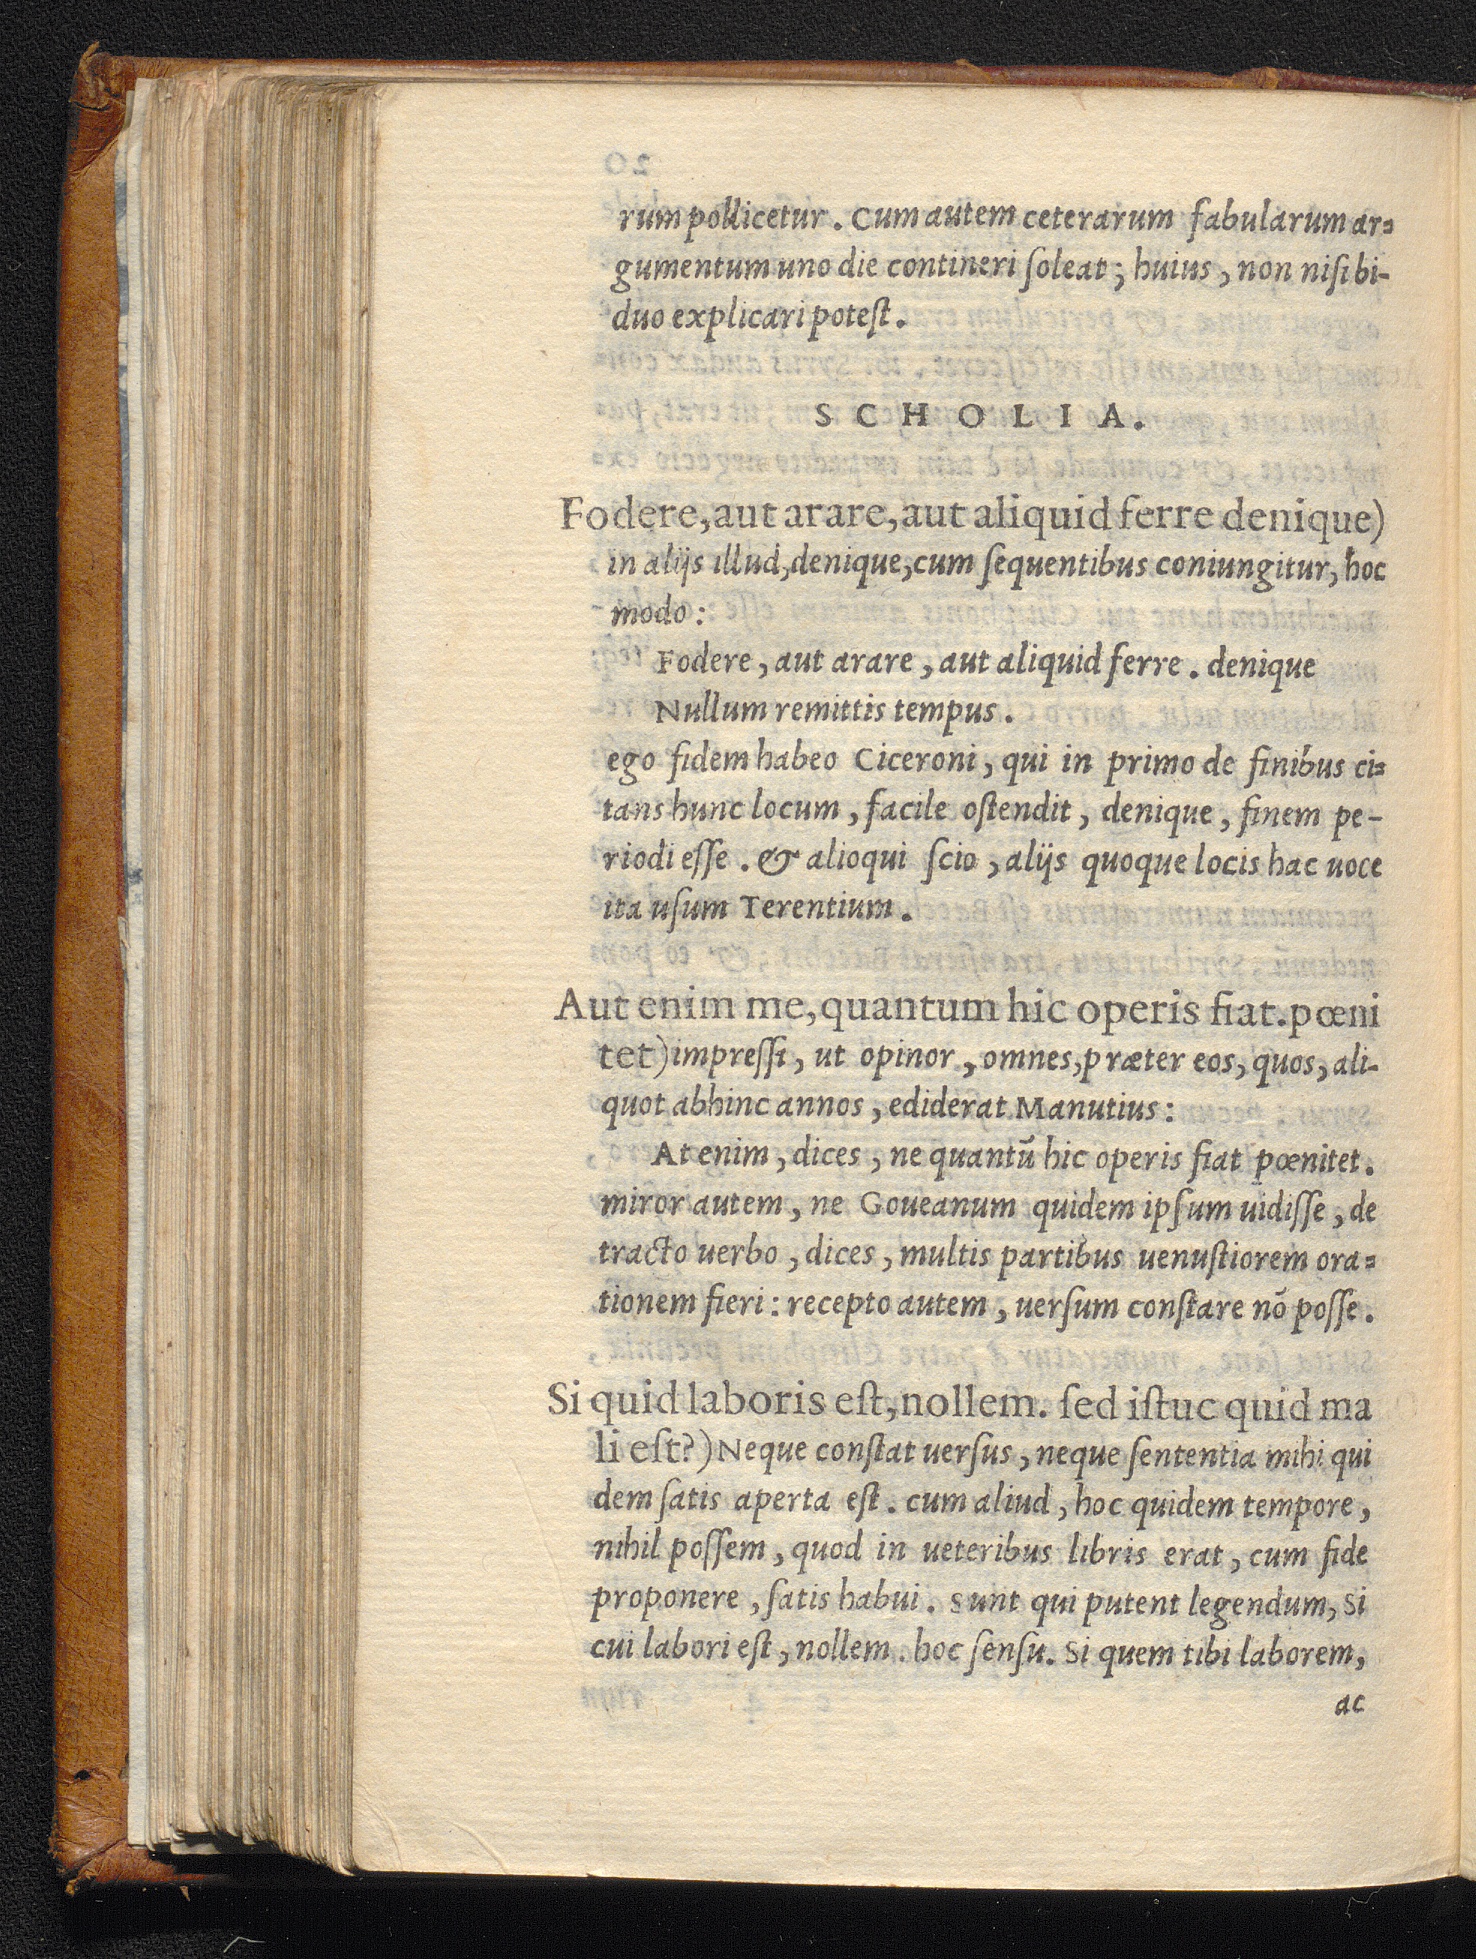 rum pollicetur. Cum autem ceterarum fabularum ar=
gumentum uno die contineri ſoleat; huius, non niſi bi-
duo explicari poteſt.
SCHOLIA.
Fodere, aut arare, aut aliquid ferre denique)
in alijs illud, denique, cum ſequentibus coniungitur, hoc
modo:
Fodere, aut arare, aut aliquid ferre. denique
Nullum remittis tempus.
ego fidem habeo Ciceroni, qui in primo de finibus ci=
tans hunc locum, facile oſtendit, denique, finem pe-
riodi eſſe. & alioqui ſcio, alijs quoque locis hac uoce
ita uſum Terentium.
Aut enim me, quantum hic operis fiat. pœni
tet) impreſſi, ut opinor, omnes, præter eos, quos, ali-
quot abhinc annos, ediderat Manutius:
At enim, dices, ne quantū hic operis fiat pœnitet.
miror autem, ne Goueanum quidem ipſum uidiſſe, de
tracto uerbo, dices, multis partibus uenuſtiorem ora=
tionem fieri: recepto autem, uerſum conſtare nō poſſe.
Si quid laboris eſt, nollem. ſed iſtuc quid ma
li eſt?) Neque conſtat uerſus, neque ſententia mihi qui
dem ſatis aperta eſt. cum aliud, hoc quidem tempore,
nihil poſſem, quod in ueteribus libris erat, cum fide
proponere, ſatis habui. Sunt qui putent legendum, Si
cui labori eſt, nollem. hoc ſenſu. Si quem tibi laborem,
ac